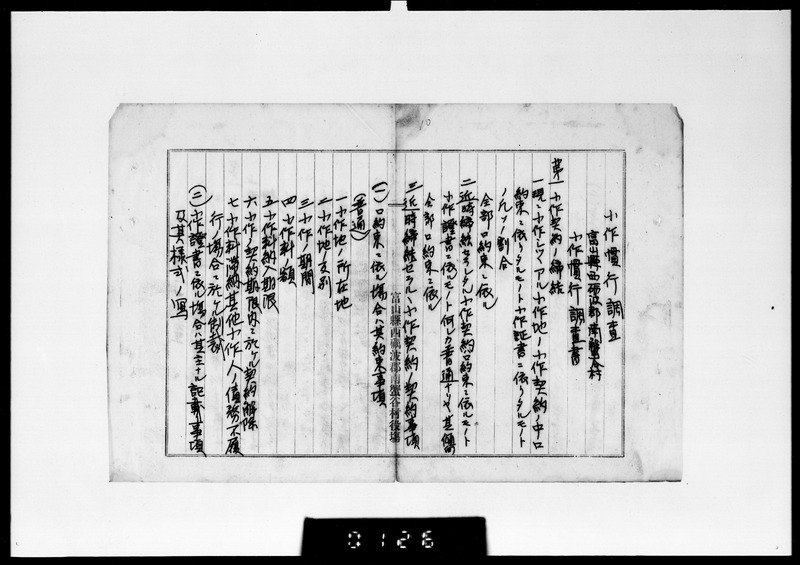 10
小作慣行調査
富山縣西砺波郡南蟹谷村
小作慣行調査書
第一 小作契約ノ締結
一 現ニ小作シツヽアル小作地ノ小作契約ノ中口
約束ニ依リタルモノト小作証書ニ依リタルモノト
ノ凡ソノ割合
全部口約束ニ依ル
二 近時締結セラレタル小作契約ハ口約束ニ依ルモノト
小作證書ニ依ルモノト何レカ普通ナリヤ其傾向
全部口約束ニ依ル
三 近時締結セラルヽ小作契約ノ契約事項
富山縣西礪波郡南蟹谷村役場
(一) 口約束ニ依ル場合ハ其約束事項
(普通)
一 小作地ノ所在地
二 小作地ノ反別
三 小作ノ期間
四 小作料額
五 小作料納入期限
六 小作ノ契約期限内ニ於ケル契約解除
七 小作料滞納其他小作人ノ債務不履
行ノ場合ニ於ケル制裁
(二) 小作證書ニ依ル場合ハ其主ナル記載事項
及其様式ノ寫
0126